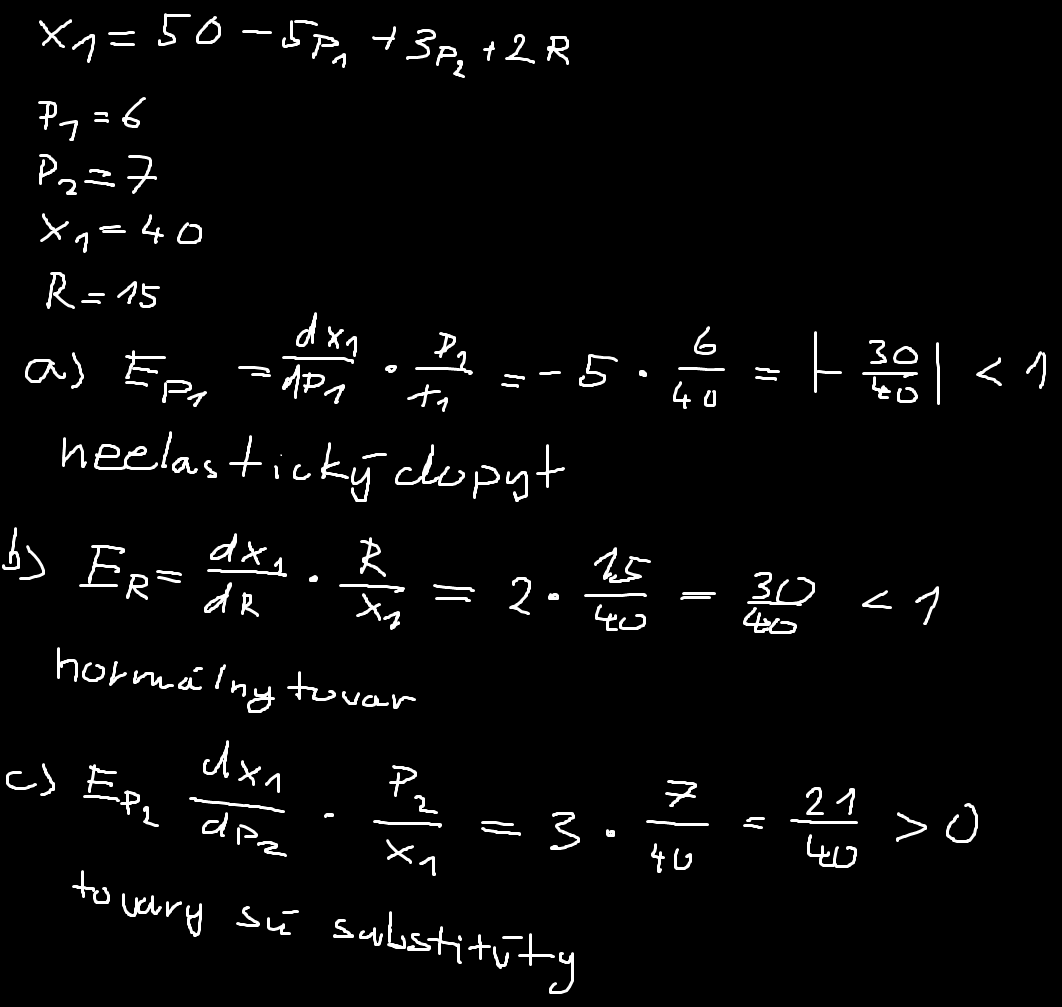 x₁ = 50 - 5p₁ + 3p₂ + 2R
P₁ = 6
P₂ = 7
x₁ = 40
R = 15
a) E_P₁ = dx₁/dP₁ · P₁/x₁ = -5 · 6/40 = |-30/40| < 1
neelastický dopyt
b) E_R = dx₁/dR · R/x₁ = 2 · 15/40 = 30/40 < 1
normálny tovar
c) E_P₂ dx₁/dP₂ · P₂/x₁ = 3 · 7/40 = 21/40 > 0
tovary sú substitúty